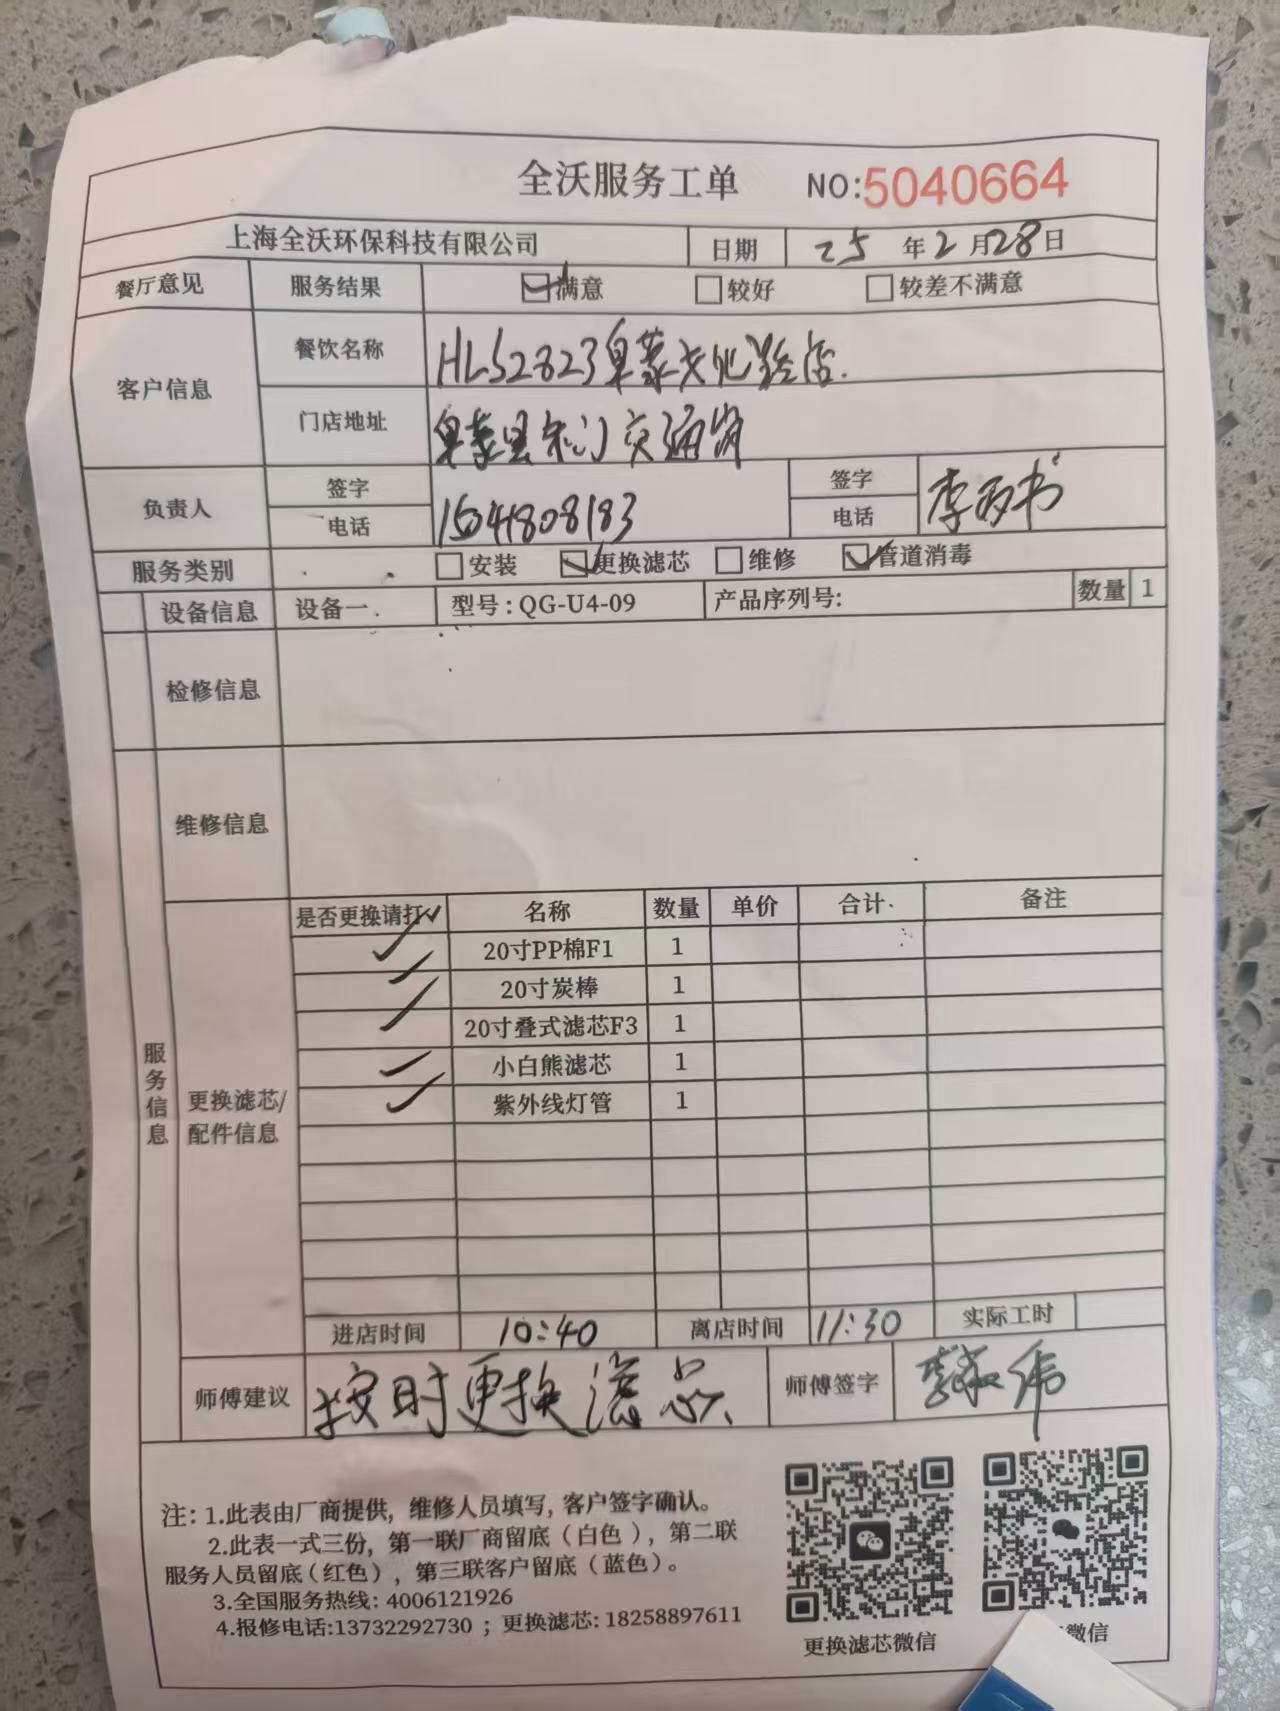 全沃服务工单 NO:5040664
上海全沃环保科技有限公司 日期 25 年 2 月 28 日
餐厅意见 服务结果 满意 较好 较差不满意
客户信息 餐饮名称 HLS2823阜蒙文化路店.
门店地址 阜蒙县东门交通岗
负责人 签字 电话 签字 电话 李
服务类别 安装 更换滤芯 维修 管道消毒
设备信息 设备一. 型号:QG-U4-09 产品序列号: 数量 1
检修信息
维修信息
服务信息
更换滤芯/配件信息
是否更换请打✓ 名称 数量 单价 合计 备注
✓ 20寸PP棉F1 1
✓ 20寸炭棒 1
✓ 20寸叠式滤芯F3 1
✓ 小白熊滤芯 1
✓ 紫外线灯管 1
进店时间 10:40 离店时间 11:30 实际工时
师傅建议 按时更换滤芯 师傅签字 李 伟
注: 1.此表由厂商提供, 维修人员填写, 客户签字确认。
2.此表一式三份, 第一联厂商留底(白色), 第二联
服务人员留底(红色), 第三联客户留底(蓝色)。
3.全国服务热线: 4006121926
4.报修电话:13732292730 ; 更换滤芯: 18258897611
更换滤芯微信 微信